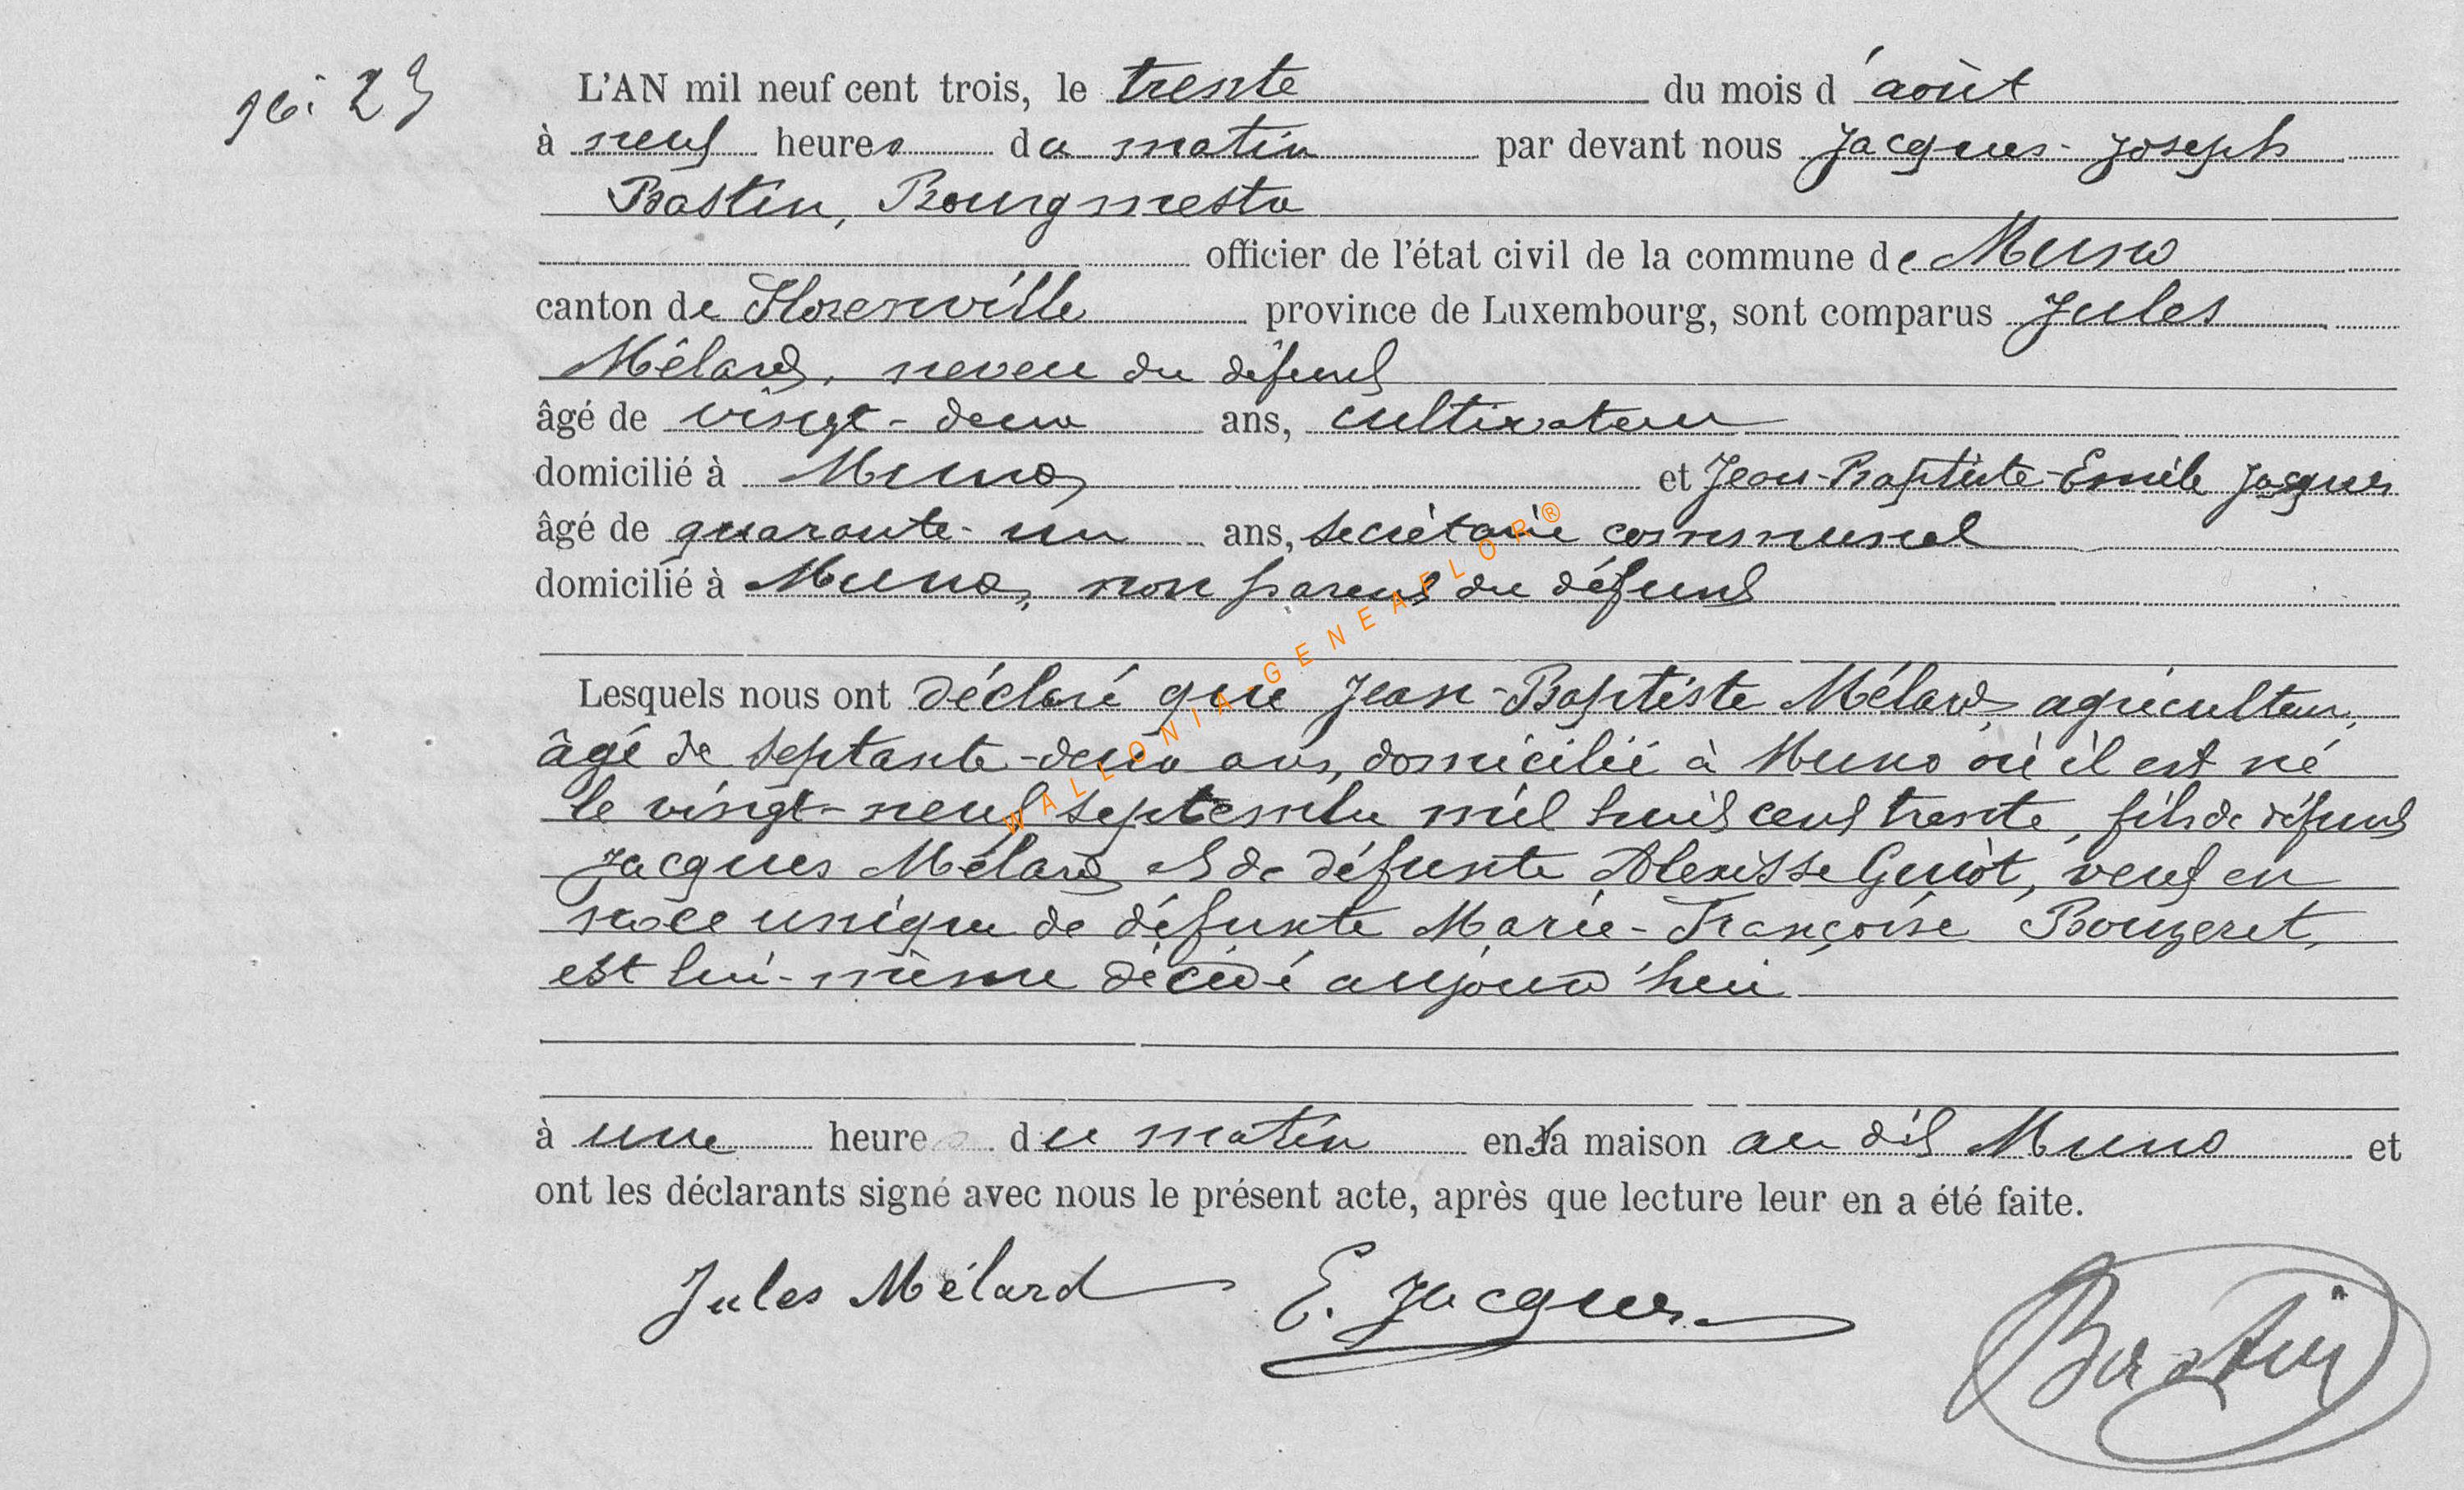 N° 23
L'AN mil neuf cent trois, le trente du mois d'août
à neuf heures du matin par devant nous Jacques-Joseph
Bastin, Bourgmestre
officier de l'état civil de la commune de Muno
canton de Florenville province de Luxembourg, sont comparus Jules
Mélard, neveu du défunt
âgé de vingt-deux ans, cultivateur
domicilié à Muno, et Jean-Baptiste-Emile Jacques
âgé de quarante-un ans, secrétaire communal
domicilié à Muno, non parent du défunt
Lesquels nous ont déclaré que Jean-Baptiste Mélard, agriculteur,
âgé de septante-deux ans, domicilié à Muno où il est né
le vingt-neuf septembre mil huit cent trente, fils de défunt
Jacques Mélard et de défunte Alexisse Guiot, veuf en
noce unique de défunte Marie-Françoise Bouzeret,
est lui-même décédé aujourd'hui
à une heure du matin en sa maison au dit Muno et
ont les déclarants signé avec nous le présent acte, après que lecture leur en a été faite.
Jules Mélard E. Jacques Bastin
WALLONIA-GENEAFLOR®